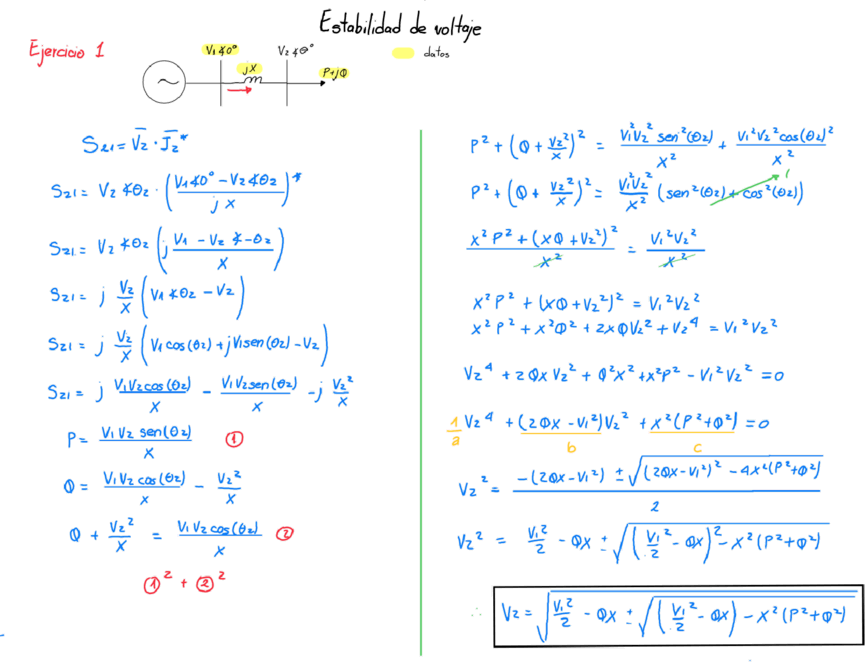 Estabilidad de voltaje
Ejercicio 1
V1∡0°
V2∡θ°
datos
jX
P+jQ
~
S21 = V̅2 · I̅2*
S21 = V2 ∡θ2 · ( (V1∡0° - V2∡θ2) / (j X) )*
S21 = V2 ∡θ2 ( j (V1 - V2 ∡-θ2) / X )
S21 = j V2/X ( V1 ∡θ2 - V2 )
S21 = j V2/X ( V1cos(θ2) + jV1sen(θ2) - V2 )
S21 = j V1V2cos(θ2)/X - V1V2sen(θ2)/X - j V2²/X
P = V1 V2 sen(θ2)/X ①
Q = V1V2 cos(θ2)/X - V2²/X
Q + V2²/X = V1V2cos(θ2)/X ②
①² + ②²
P² + (Q + V2²/X)² = V1²V2² sen²(θ2)/X² + V1²V2²cos(θ2)²/X²
P² + (Q + V2²/X)² = V1²V2²/X² (sen²(θ2) + cos²(θ2)) 1
(X²P² + (XQ + V2²)²)/X² = V1²V2²/X²
X²P² + (XQ + V2²)² = V1²V2²
X²P² + X²Q² + 2XQV2² + V2⁴ = V1²V2²
V2⁴ + 2QXV2² + Q²X² + X²P² - V1²V2² = 0
1 V2⁴ + (2QX - V1²)V2² + X²(P² + Q²) = 0
a b c
V2² = (-(2QX - V1²) ± √((2QX - V1²)² - 4X²(P² + Q²))) / 2
V2² = V1²/2 - QX ± √((V1²/2 - QX)² - X²(P² + Q²))
∴ V2 = √(V1²/2 - QX ± √((V1²/2 - QX) - X²(P² + Q²)))